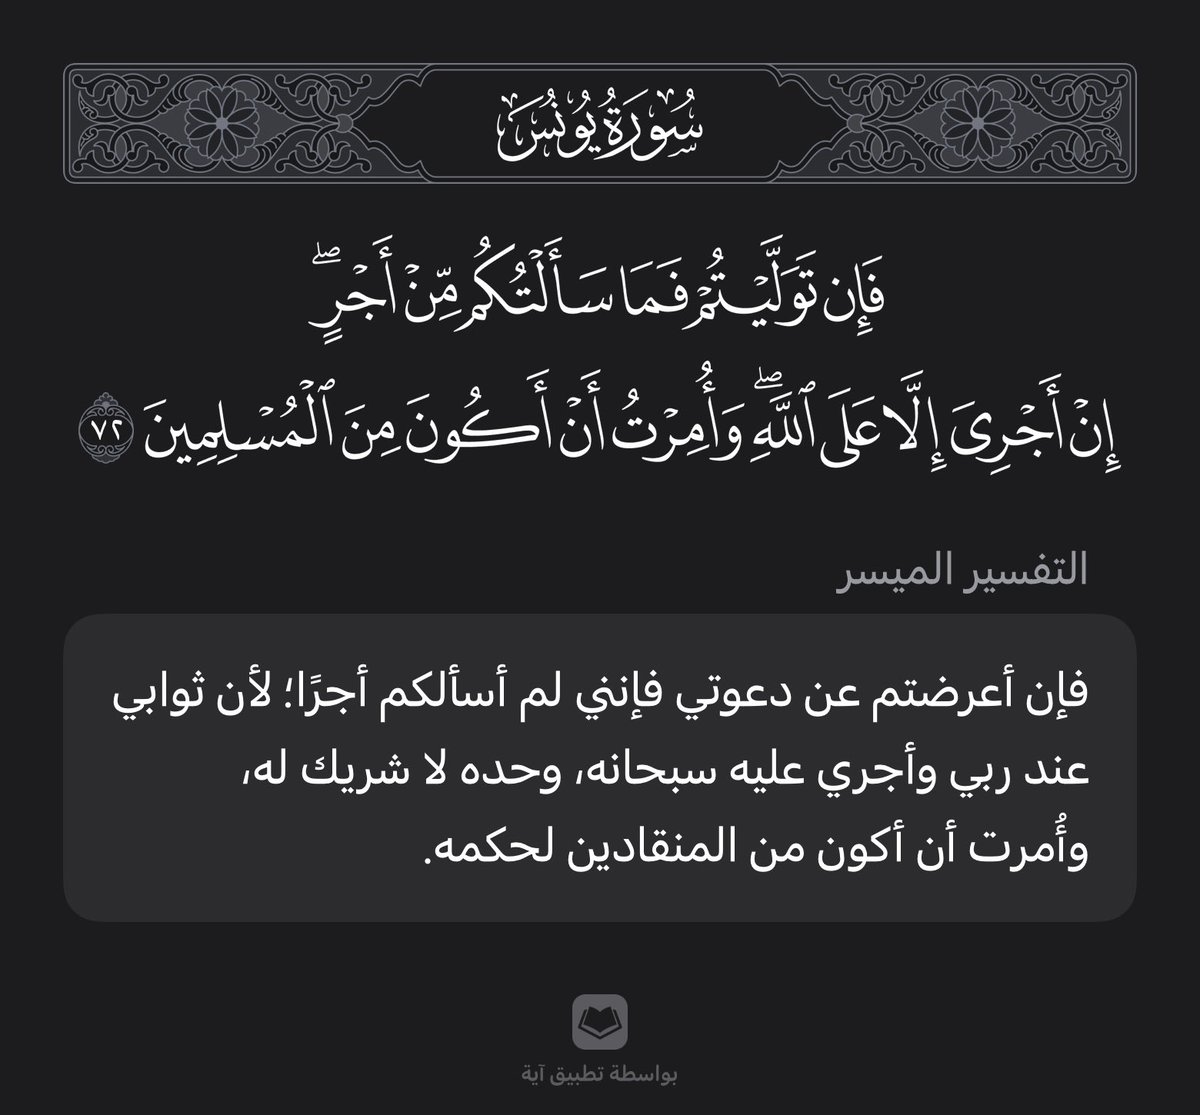 سُورَةُ يُونُسَ
فَإِن تَوَلَّيْتُمْ فَمَا سَأَلْتُكُم مِّنْ أَجْرٍ ۖ
إِنْ أَجْرِىَ إِلَّا عَلَى ٱللَّهِ ۖ وَأُمِرْتُ أَنْ أَكُونَ مِنَ ٱلْمُسْلِمِينَ ٧٢
التفسير الميسر
فإن أعرضتم عن دعوتي فإنني لم أسألكم أجرًا؛ لأن ثوابي
عند ربي وأجري عليه سبحانه، وحده لا شريك له،
وأُمرت أن أكون من المنقادين لحكمه.
بواسطة تطبيق آية